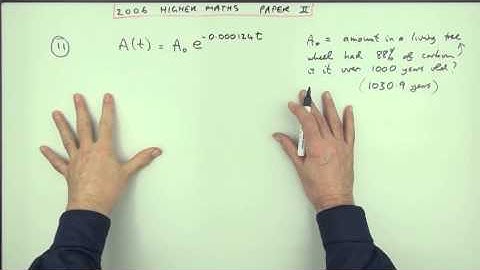 2006 HIGHER MATHS PAPER II
11 A(t) = A₀ e^-0.000124t
A₀ = amount in a living tree
wheel had 88% of carbon
is it over 1000 years old?
(1030.9 years)